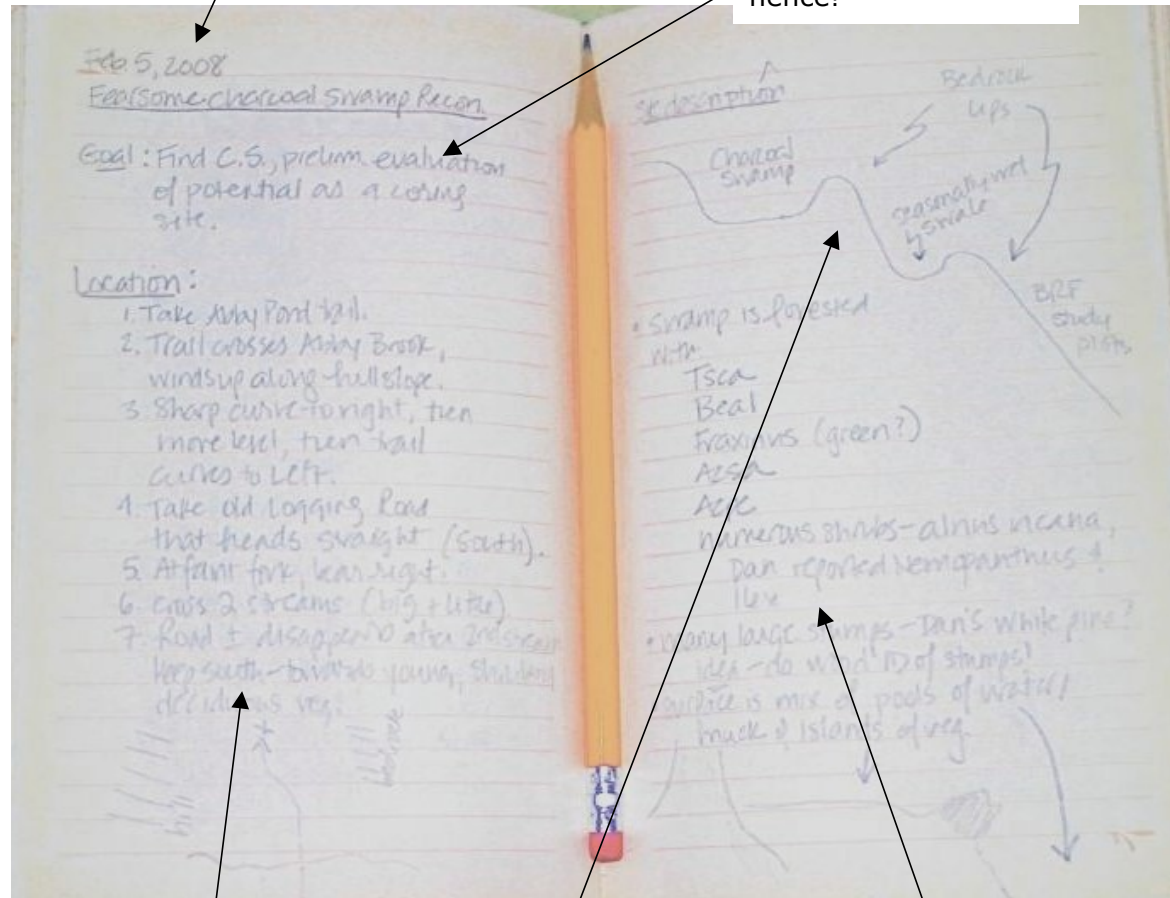 hence?
Feb. 5, 2008
Fearsome Charcoal Swamp Recon
Goal: Find C.S., prelim. evaluation
of potential as a coring
site.
Location:
1. Take Abby Pond trail.
2. Trail crosses Abby Brook,
winds up along hillslope.
3. Sharp curve to right, then
more level, then trail
curves to left.
4. Take old logging Road
that heads straight (South).
5. At faint fork, bear right.
6. Cross 2 streams (big + little)
7. Road ± disappears after 2nd stream
keep south - towards young,
deciduous veg.
hill
site description
Bedrock
lips
Charcoal
Swamp
seasonally wet
swale
BRF
study
plots
• Swamp is forested
with
Tsca
Beal
Fraxinus (green?)
Acsa
numerous shrubs - alnus incana,
Dan reported Nemopanthus &
Ilex
• many large stumps - Dan's white pine?
idea - do wood ID of stumps!
surface is mix of pools of water/
muck & islands of veg.